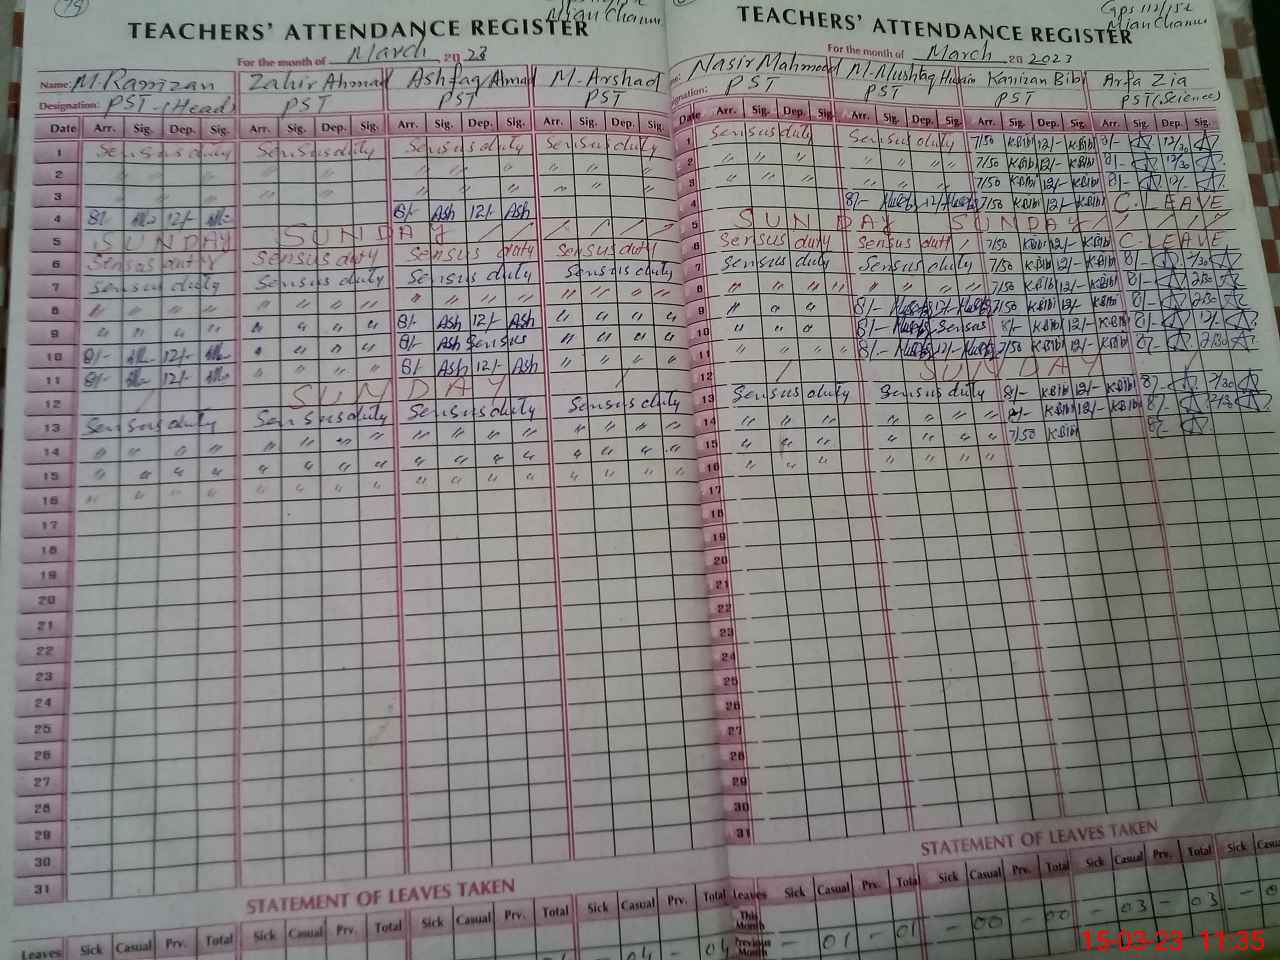 TEACHERS' ATTENDANCE REGISTER
For the month of March 2023
Name: M. Ramzan Zahir Ahmad Ashfaq Ahmad M. Arshad
Designation: PST (Head) PST PST PST
Date Arr. Sig. Dep. Sig. Arr. Sig. Dep. Sig. Arr. Sig. Dep. Sig. Arr. Sig. Dep. Sig.
1 Sensus duty Sensus duty Sensus duty Sensus duty
2 " " " "
3 " " " "
4 8/- 12/- 8/- Ash 12/- Ash
5 SUNDAY SUNDAY
6 Sensus duty Sensus duty Sensus duty Sensus duty
7 Sensus duty Sensus duty Sensus duty Sensus duty
8 " " " " " " " " " " " " " " " "
9 " " " " " " " " 8/- Ash 12/- Ash " " " "
10 8/- 12/- " " " " 8/- Ash Sensus " " " "
11 8/- 12/- " " " " 8/- Ash 12/- Ash " " " "
12 SUNDAY
13 Sensus duty Sensus duty Sensus duty Sensus duty
14 " " " " " " " " " " " " " " " "
15 " " " " " " " " " " " " " " " "
16 " " " " " " " " " " " " " " " "
17
18
19
20
21
22
23
24
25
26
27
28
29
30
31
STATEMENT OF LEAVES TAKEN
Leaves Sick Casual Prv. Total Sick Casual Prv. Total Sick Casual Prv. Total Sick Casual Prv. Total
04 - 04
GPS 112/15L
Mian Channu
TEACHERS' ATTENDANCE REGISTER
For the month of March 2023
Nasir Mahmood M. Mushtaq Husain Kanizan Bibi Arfa Zia
PST PST PST PST (Science)
Date Arr. Sig. Dep. Sig. Arr. Sig. Dep. Sig. Arr. Sig. Dep. Sig. Arr. Sig. Dep. Sig.
1 Sensus duty Sensus duty 7/50 KBibi 12/- KBibi 8/- 12/30
2 " " " " " " " 7/50 KBibi 12/- KBibi 8/- 12/30
3 " " " " " " " 7/50 KBibi 12/- KBibi 8/- 12/-
4 8/- 12/- 7/50 KBibi 12/- KBibi C. LEAVE
5 SUNDAY SUNDAY
6 Sensus duty Sensus duty 7/50 KBibi 12/- KBibi C. LEAVE
7 Sensus duty Sensus duty 7/50 KBibi 12/- KBibi 8/-
8 " " " " " " " " 7/50 KBibi 12/- KBibi 8/-
9 " " " 8/- 12/- 7/50 KBibi 12/- KBibi 8/-
10 " " " 8/- Sensus 8/- KBibi 12/- KBibi 8/- 12/-
11 " " " " 8/- 12/- 7/50 KBibi 12/- KBibi 8/-
12 SUNDAY
13 Sensus duty Sensus duty 8/- KBibi 12/- KBibi 8/-
14 " " " " " " " " 8/- KBibi 12/- KBibi 8/-
15 " " " " " " " " 7/50 KBibi 8/-
16 " " " " " " " "
17
18
19
20
21
22
23
24
25
26
27
28
29
30
31
STATEMENT OF LEAVES TAKEN
Leaves Sick Casual Prv. Total Sick Casual Prv. Total Sick Casual Prv. Total Sick
This Month
Previous Month - 01 - 01 - 00 - 00 - 03 - 03
15-03-23 11:35